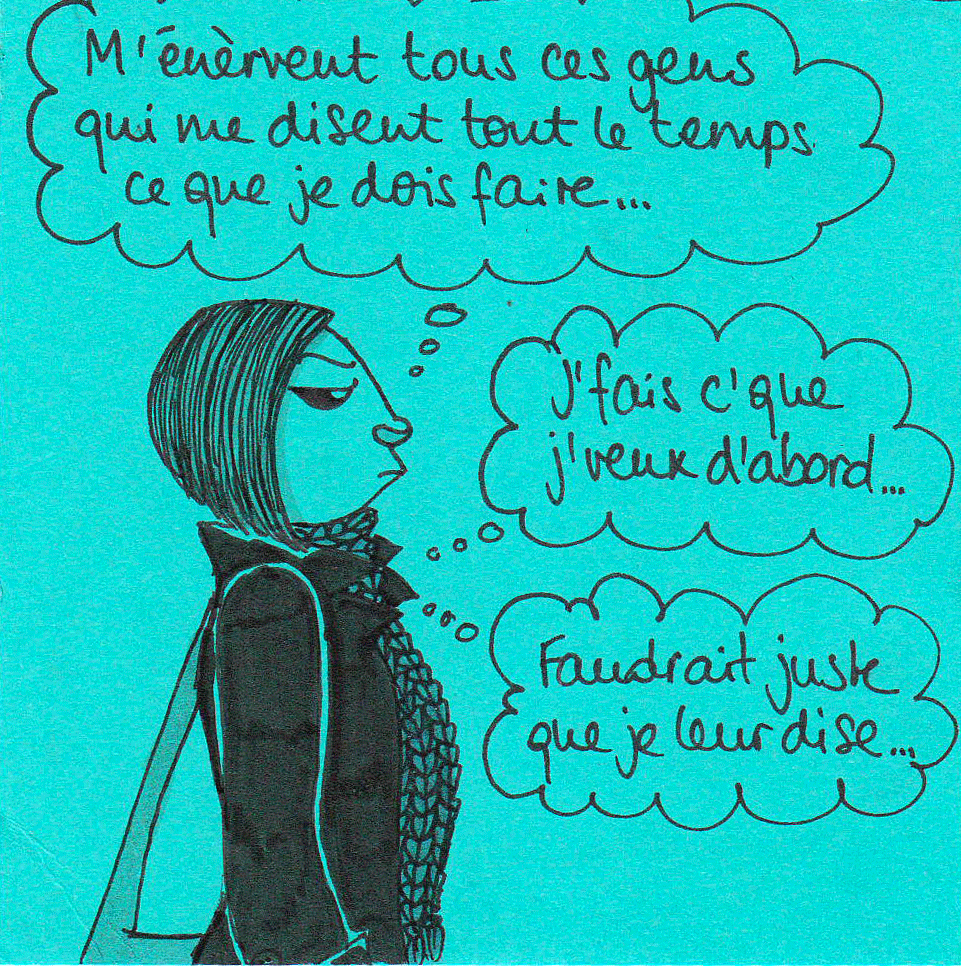 M'énèrvent tous ces gens
qui me disent tout le temps
ce que je dois faire...
J'fais c'que
j'veux d'abord...
Faudrait juste
que je leur dise...